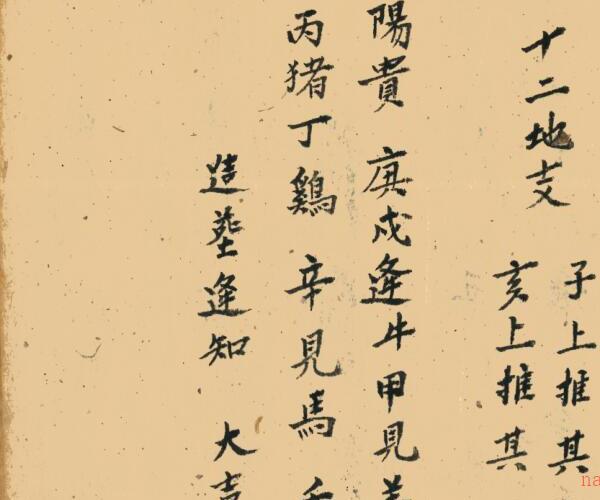 十二地支
子上推其
亥上推其
陽貴 庚戊逢牛甲見羊
丙猪丁鷄 辛見馬
造塟逢知 大吉
na